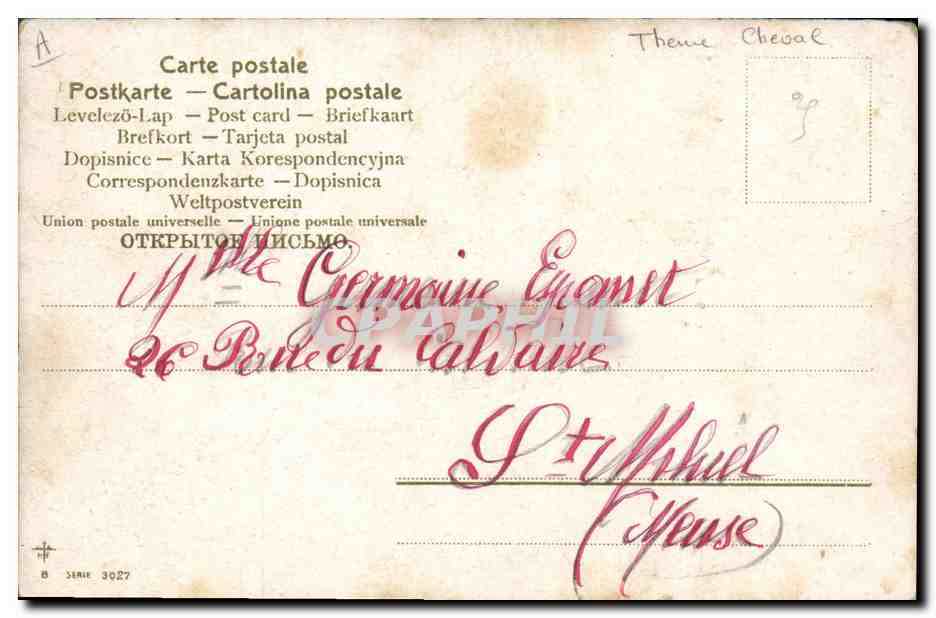 A
Theme Cheval
Carte postale
Postkarte — Cartolina postale
Levelező-Lap — Post card — Briefkaart
Brefkort — Tarjeta postal
Dopisnice — Karta Korespondencyjna
Correspondenzkarte — Dopisnica
Weltpostverein
Union postale universelle — Unione postale universale
ОТКРЫТОЕ ПИСЬМО.
Mlle Germaine
CPAPHIL
26 Rue du Calvaire
St Mihiel
(Meuse)
B SERIE 3027